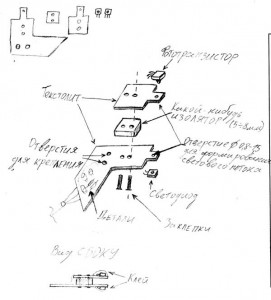 Фототранзистор
Текстолит
Какой-нибудь
изолятор
(5÷8мм)
Отверстия
для крепления
Отверстие Ø 0.8-1.5
для формирования
светового потока
Светодиод
Детали
Заклепки
Вид сбоку
Клей